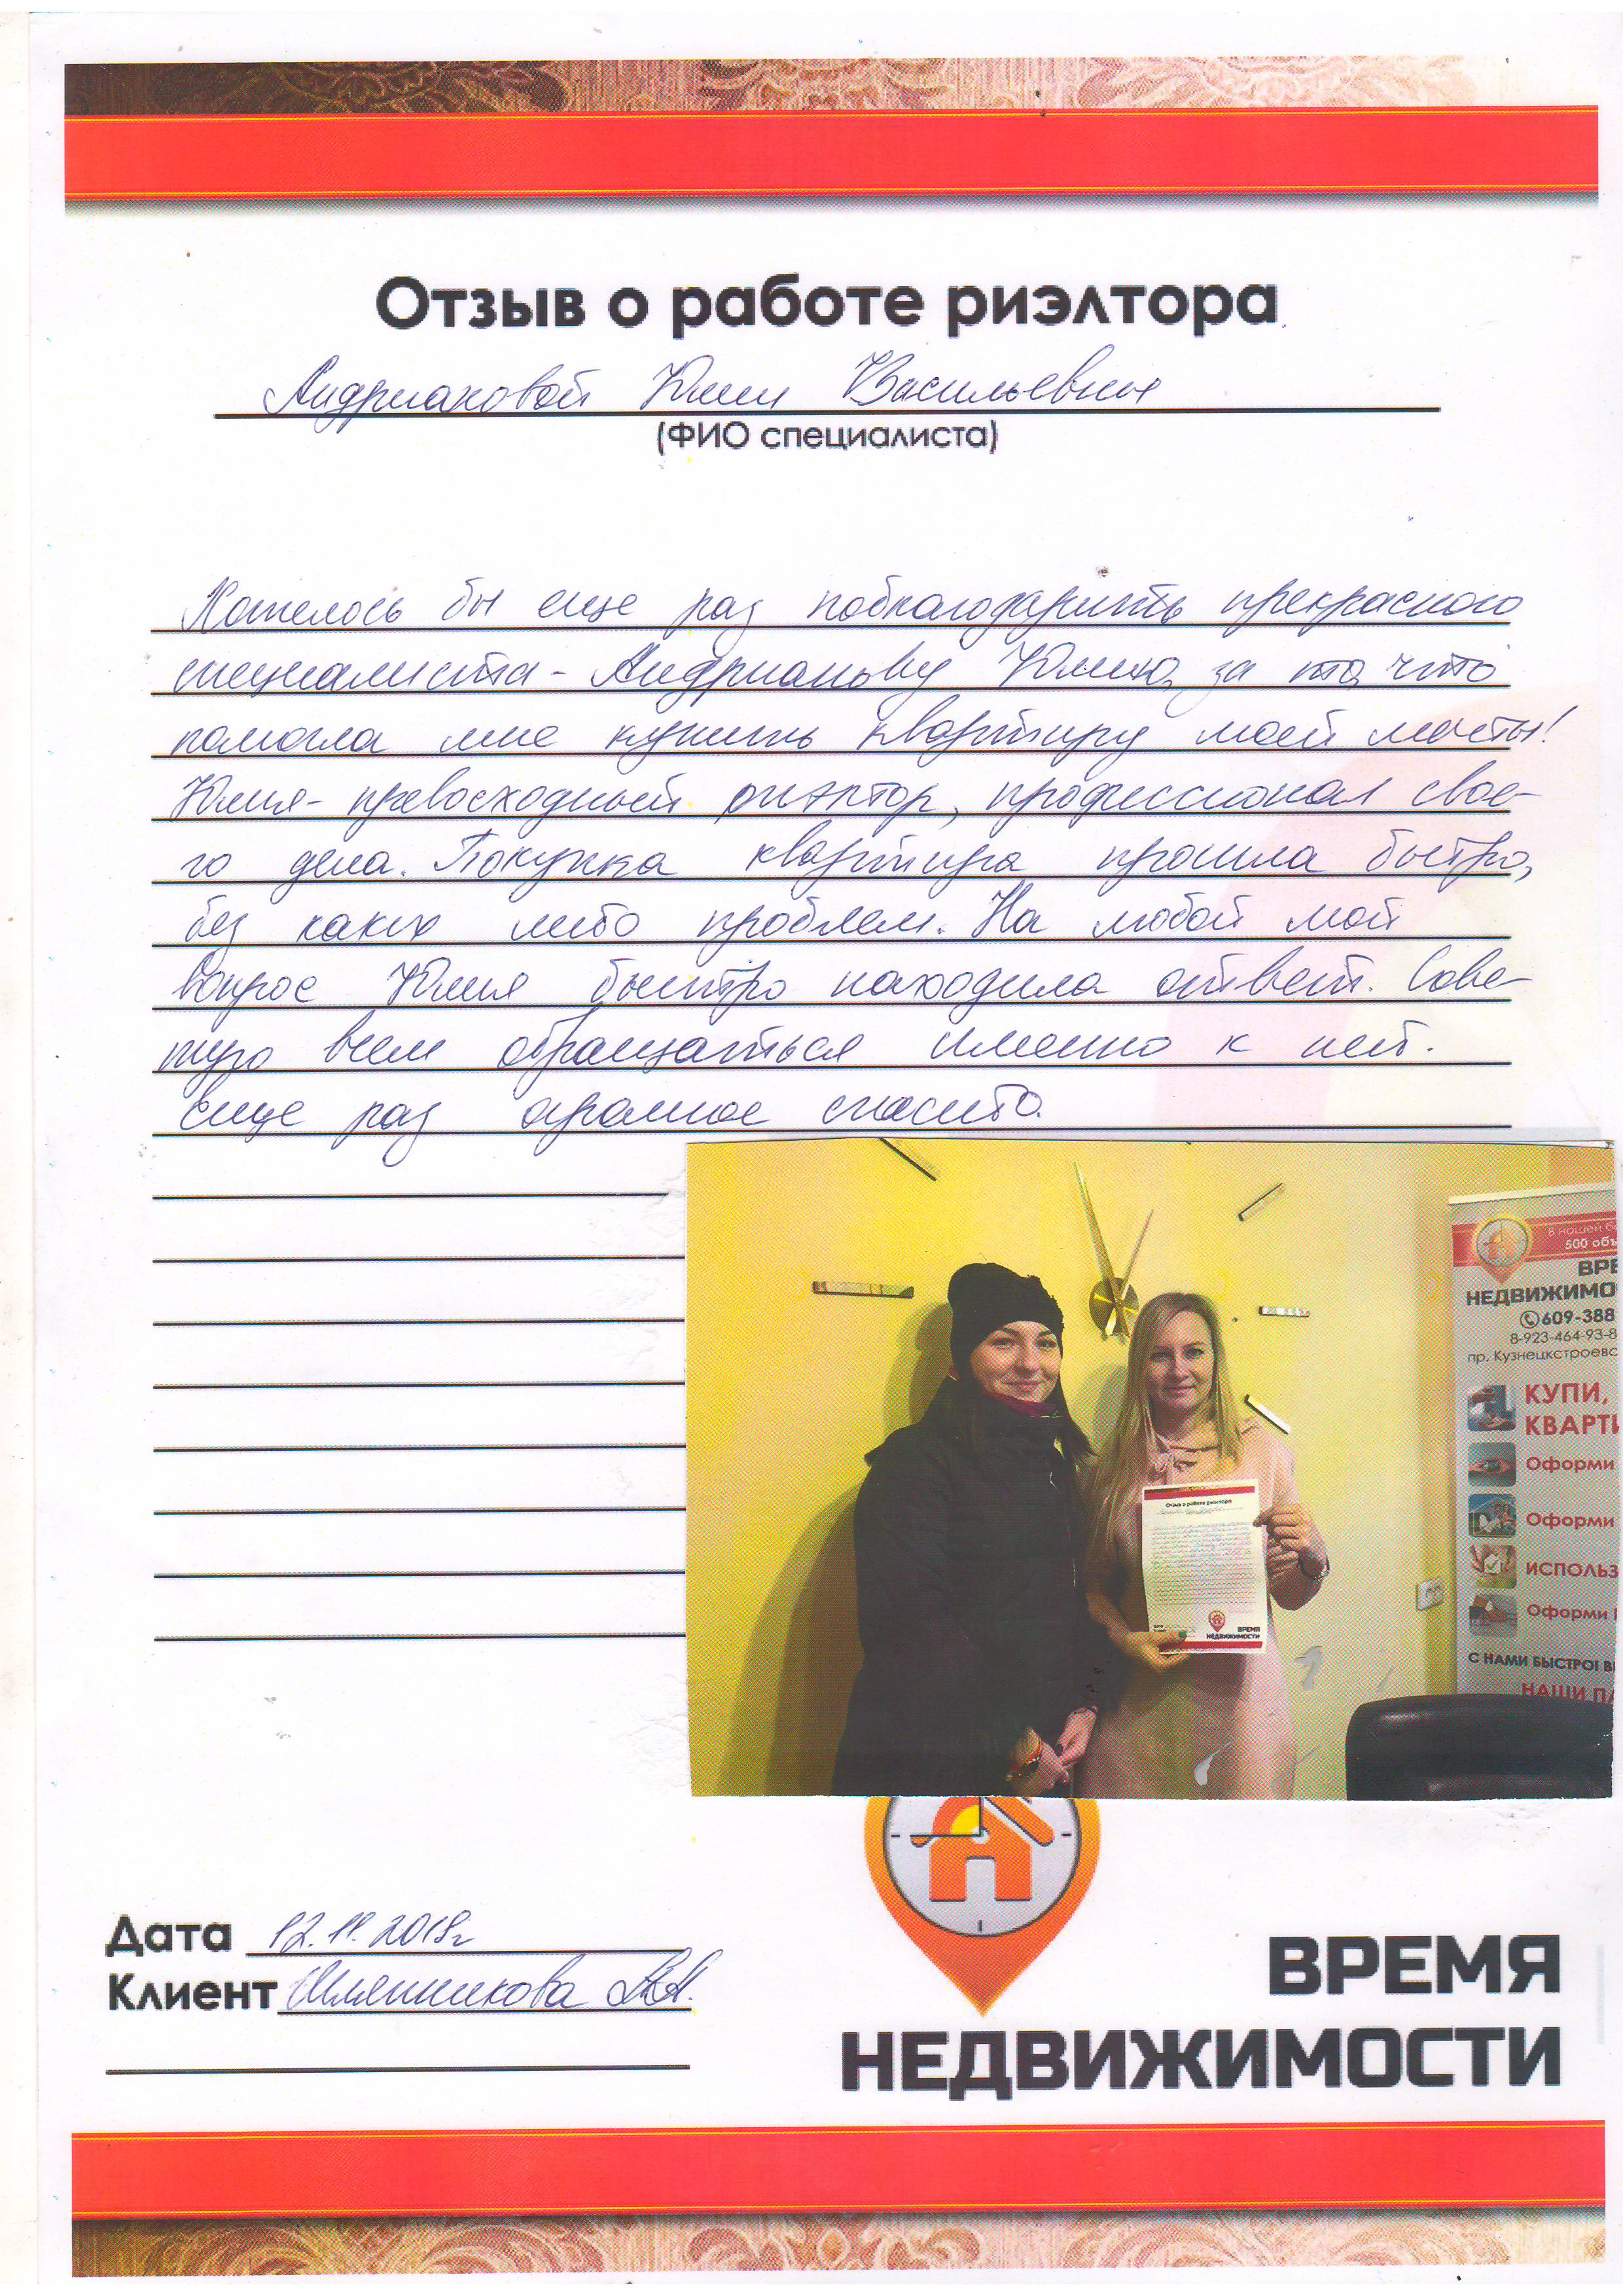 Отзыв о работе риэлтора
Андриановой Юлии Васильевны
(ФИО специалиста)
Хотелось бы еще раз поблагодарить прекрасного
специалиста - Андрианову Юлию, за то, что
помогла мне купить квартиру моей мечты!
Юлия - превосходный риэлтор, профессионал свое-
го дела. Покупка квартира прошла быстро,
без каких либо проблем. На любой мой
вопрос Юлия быстро находила ответ. Сове-
тую всем обращаться именно к ней.
Еще раз огромное спасибо.
В нашей б
500 объ
ВРЕ
НЕДВИЖИМО
609-388
8-923-464-93-8
пр. Кузнецкстроевс
КУПИ,
КВАРТИ
Оформи
Оформи
ИСПОЛЬЗ
Оформи
С НАМИ БЫСТРО! В
НАШИ ПА
Отзыв о работе риэлтора
ВРЕМЯ
НЕДВИЖИМОСТИ
Дата 12.11.2018г
Клиент
ВРЕМЯ
НЕДВИЖИМОСТИ